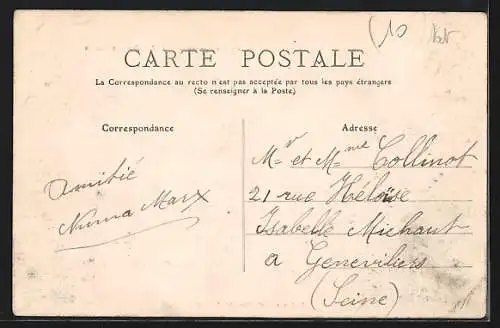 (10
CARTE POSTALE
La Correspondance au recto n'est pas acceptée par tous les pays étrangers
(Se renseigner à la Poste)
Correspondance
Adresse
Amitié
Numa Marx
Mr et Mme Collinot
21 rue Héloïse
Isabelle Michaut
a Geneviliers
(Seine)